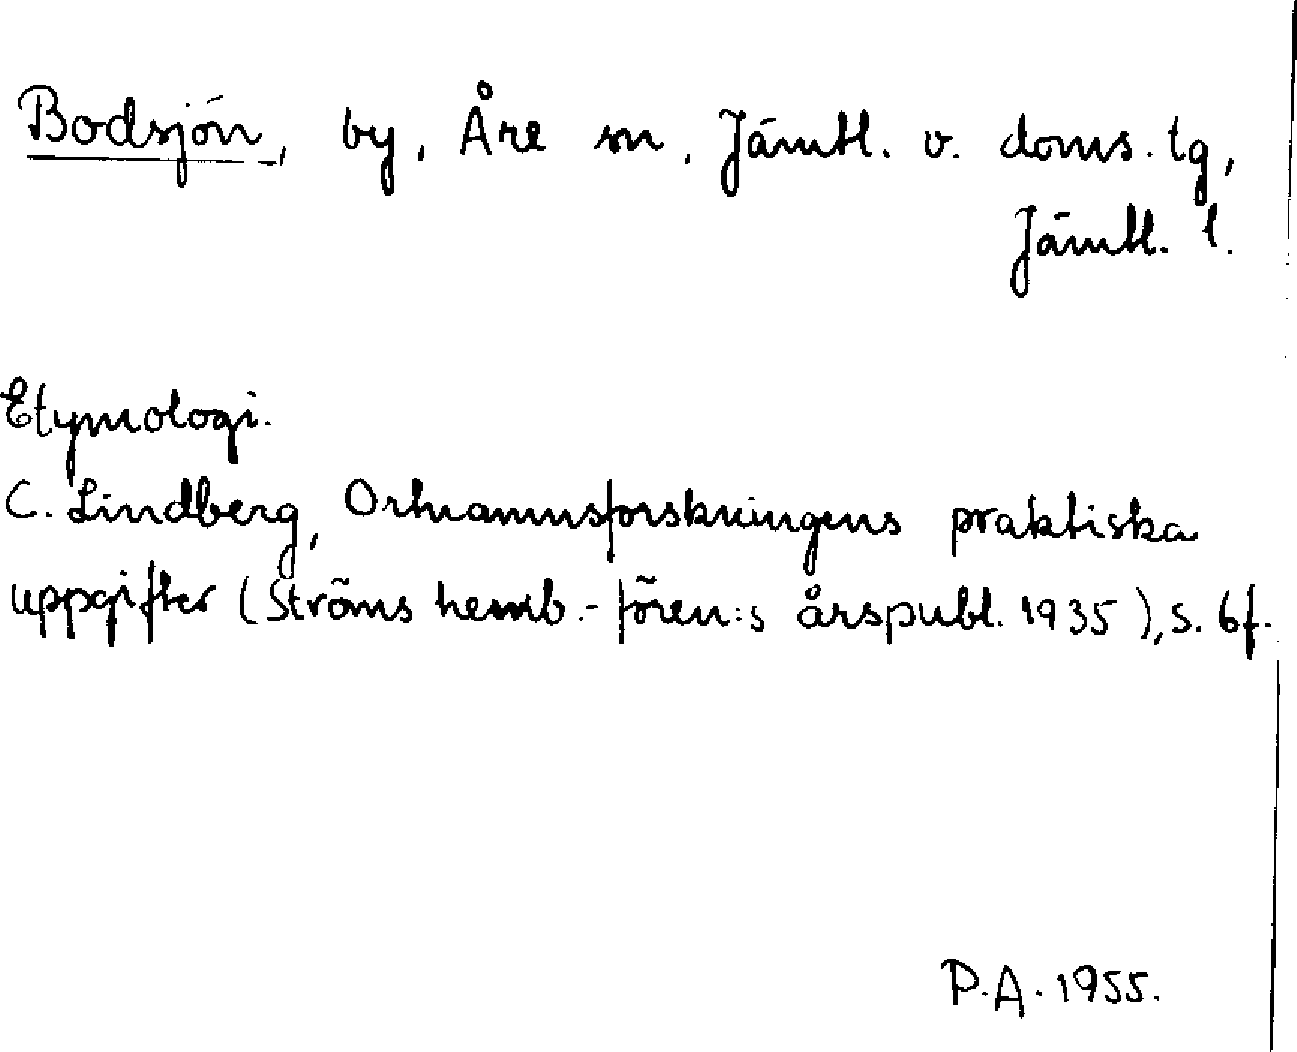 Bodsjön, by, Åre sn, Jämtl. v. doms. tg,
Jämtl. l.
Etymologi.
C. Lindberg, Ortnamnsforskningens praktiska
uppgifter (Ströms hemb.-fören:s årspubl. 1935), s. 6f.
P.A. 1955.